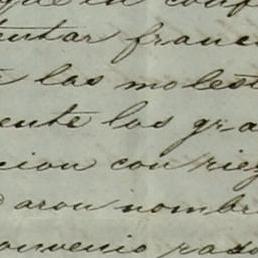 que en conf
entar franc
las molest
ente los gra
cion con riez
aron nombr
onvenio pas